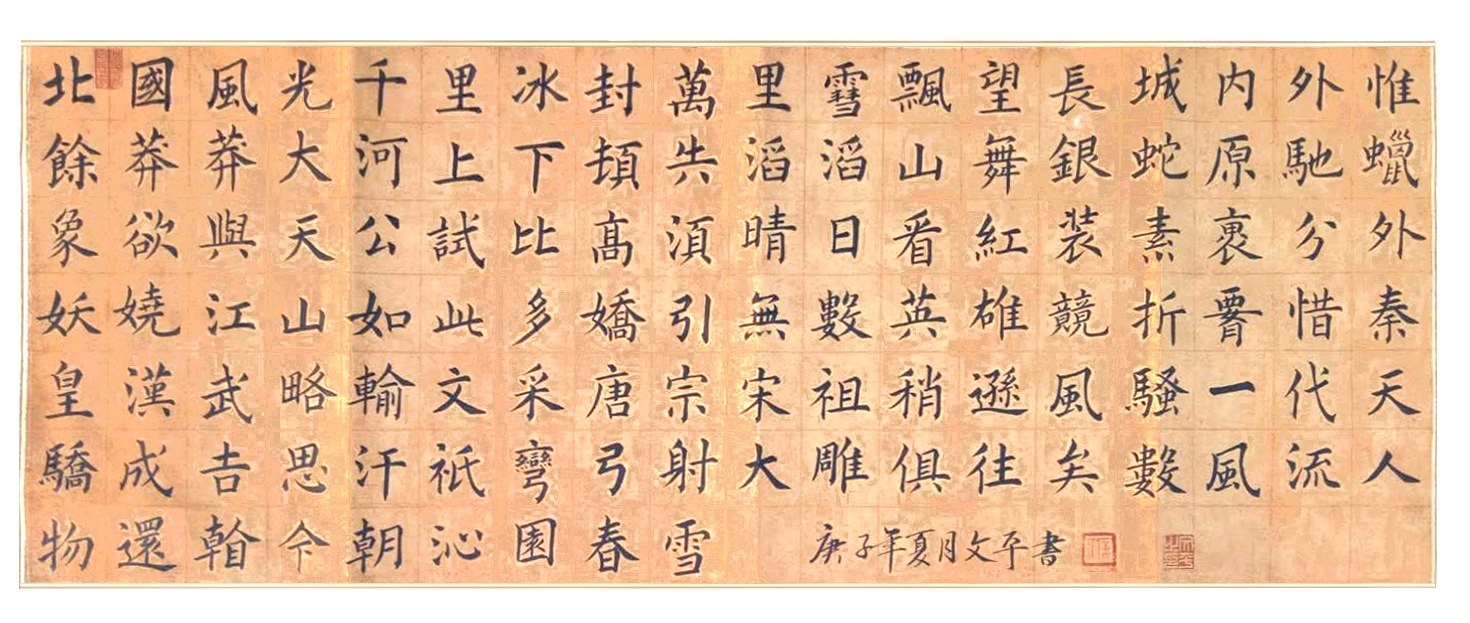 北國風光千里冰封萬里雪飄望長城内外惟
餘莽莽大河上下頓失滔滔山舞銀蛇原馳蠟
象欲與天公試比髙須晴日看紅裝素裹分外
妖嬈江山如此多嬌引無數英雄競折腰惜秦
皇漢武略輸文采唐宗宋祖稍遜風騷一代天
驕成吉思汗祇彎弓射大雕俱往矣數風流人
物還看今朝沁園春雪
庚子年夏月文平書